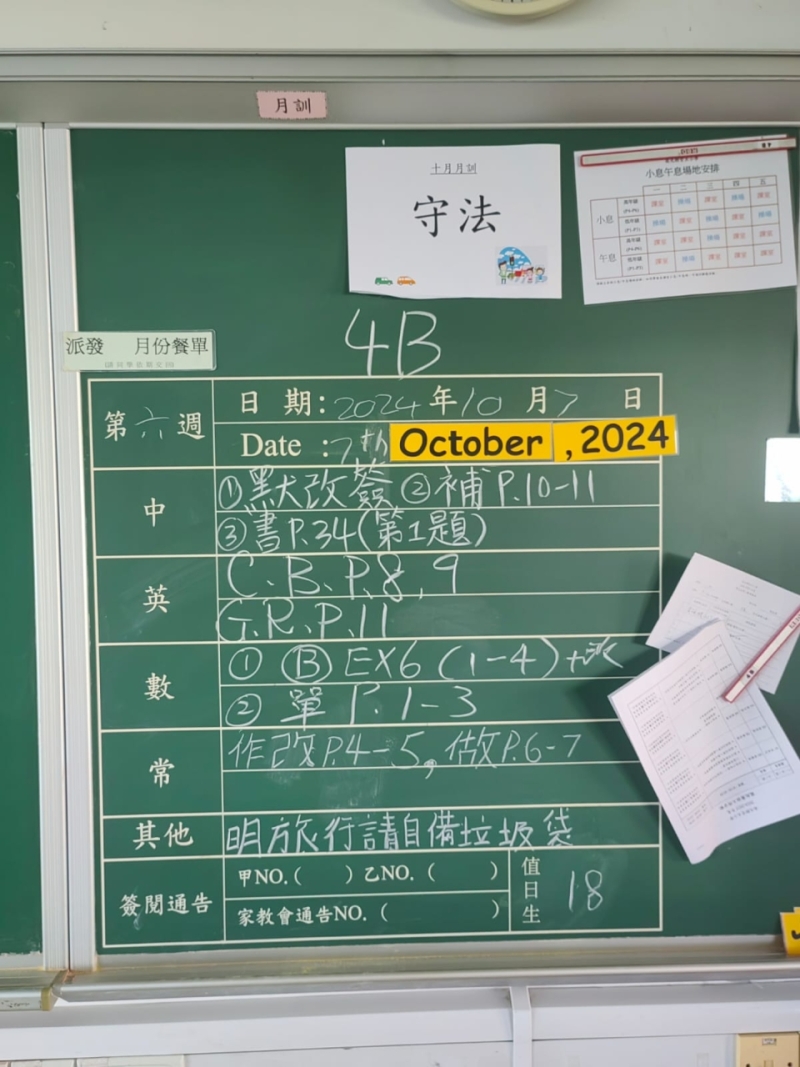 月訓
十月月訓
守法
小息午息場地安排
一 二 三 四 五
小息
午息
派發 月份餐單
4B
第六週
日期：2024年10月7日
Date : 7th October , 2024
中
①默改簽 ②補P.10-11
③書P.34(第1題)
英
C.B.P.8,9
G.R.P.11
數
① Ⓑ EX6 (1-4)+派
② 單 P.1-3
常
作改P.4-5，做P.6-7
其他
明旅行請自備垃圾袋
簽閱通告
甲NO.( ) 乙NO.( )
家教會通告NO.( )
值日生
18